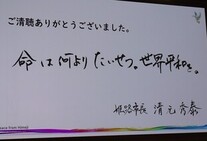 ご清聴ありがとうございました。
命は何よりたいせつ。世界平和を。
姫路市長 清元秀泰